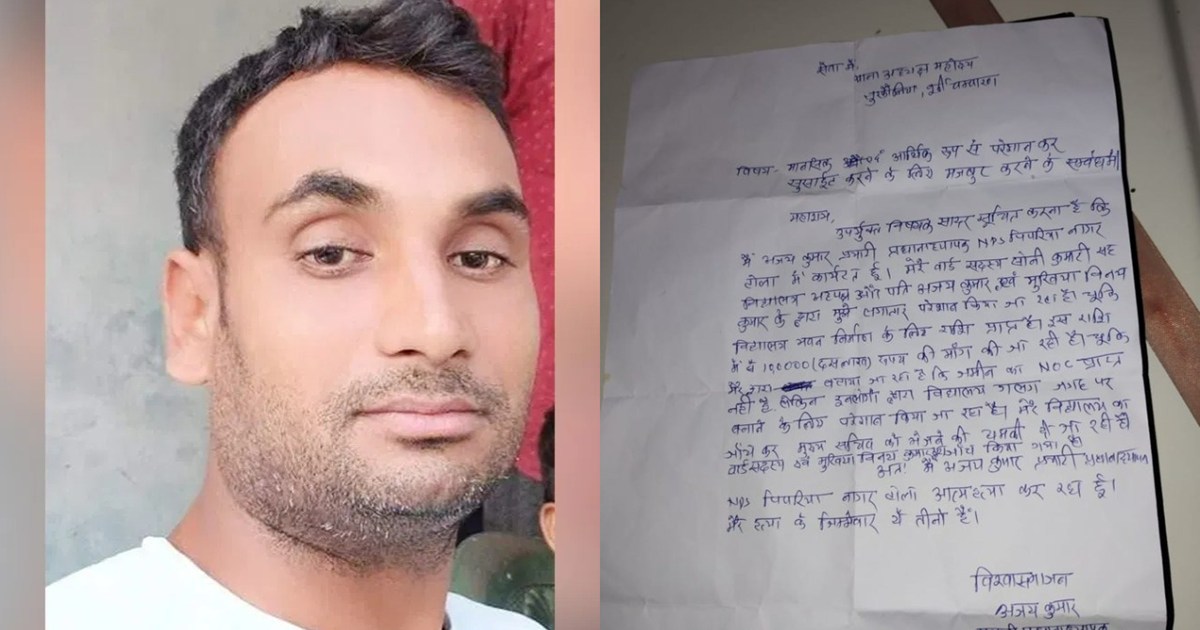 सेवा में,
थाना अध्यक्ष महोदय
तुरकौलिया, पूर्वी चम्पारण
विषय - मानसिक एवं आर्थिक रूप से परेशान कर
सुसाईट करने के लिए मजबुर करने के सम्बंध में।
महाशय,
उपर्युक्त विषयक सादर सूचित करना है कि
मैं अजय कुमार प्रभारी प्रधानाध्यापक NPS पिपरिया नागर
टोला में कार्यरत हूँ। मेरे वार्ड सदस्य सोनी कुमारी सह
विद्यालय अध्यक्ष और पति अजय कुमार एवं मुखिया विनय
कुमार के द्वारा मुझे लगातार परेशान किया जा रहा है। चूंकि
विद्यालय भवन निर्माण के लिए राशि प्राप्त है। इस राशि
में से (दस लाख) रूपया की माँग की जा रही है। चूंकि
मेरे द्वारा बताया जा रहा है कि जमीन का NOC प्राप्त
नहीं है, लेकिन उनलोगों द्वारा विद्यालय गलग जगह पर
बनाने के लिए परेशान किया जा रहा है। मेरे विद्यालय का
जाँच कर मुख्य सचिव को भेजने की धमकी दी जा रही है
वार्ड सदस्य एवं मुखिया विनय कुमार जाँच किया गया
अतः मैं अजय कुमार प्रभारी प्रधानाध्यापक
NPS पिपरिया नागर टोला आत्महत्या कर रहा हूँ।
मेरे हत्या के जिम्मेवार ये तीनों हैं।
विश्वासभाजन
अजय कुमार